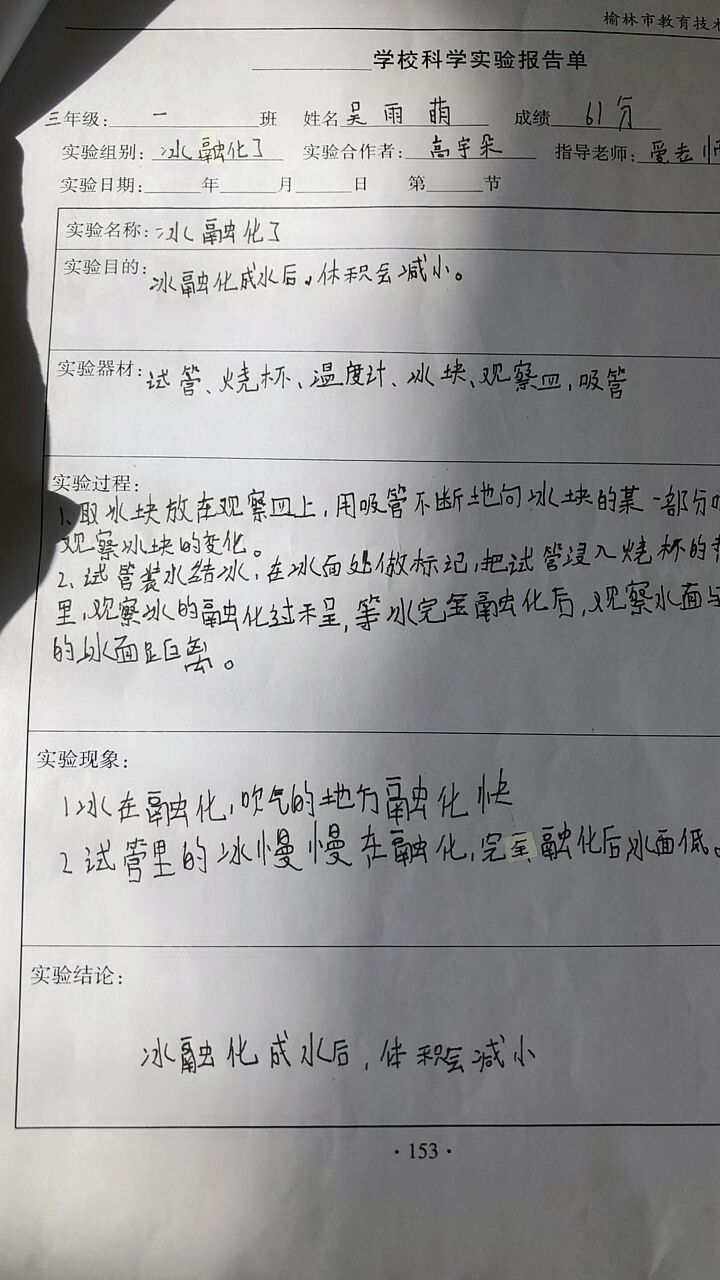 榆林市教育技术
学校科学实验报告单
三年级: 一 班 姓名 吴雨萌 成绩 61分
实验组别: 冰融化了 实验合作者: 高宇朵 指导老师: 老师
实验日期: 年 月 日 第 节
实验名称: 冰融化了
实验目的: 冰融化成水后,体积会减小。
实验器材: 试管、烧杯、温度计、冰块、观察皿,吸管
实验过程:
1、取冰块放在观察皿上,用吸管不断地向冰块的某一部分吹
观察冰块的变化。
2、试管装水结冰,在冰面处做标记,把试管浸入烧杯的
里,观察冰的融化过程,等冰完全融化后,观察水面与
的冰面距离。
实验现象:
1冰在融化,吹气的地方融化快
2试管里的冰慢慢在融化,完全融化后冰面低。
实验结论:
冰融化成水后,体积会减小
·153·